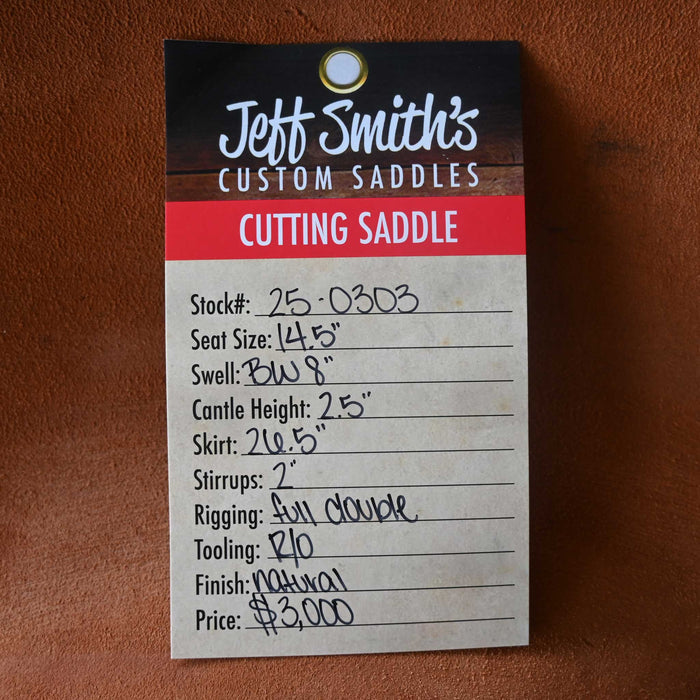 Jeff Smith's
CUSTOM SADDLES
CUTTING SADDLE
Stock#: 25-0303
Seat Size: 14.5"
Swell: BW 8"
Cantle Height: 2.5"
Skirt: 26.5"
Stirrups: 2"
Rigging: full double
Tooling: R/O
Finish: natural
Price: $3,000